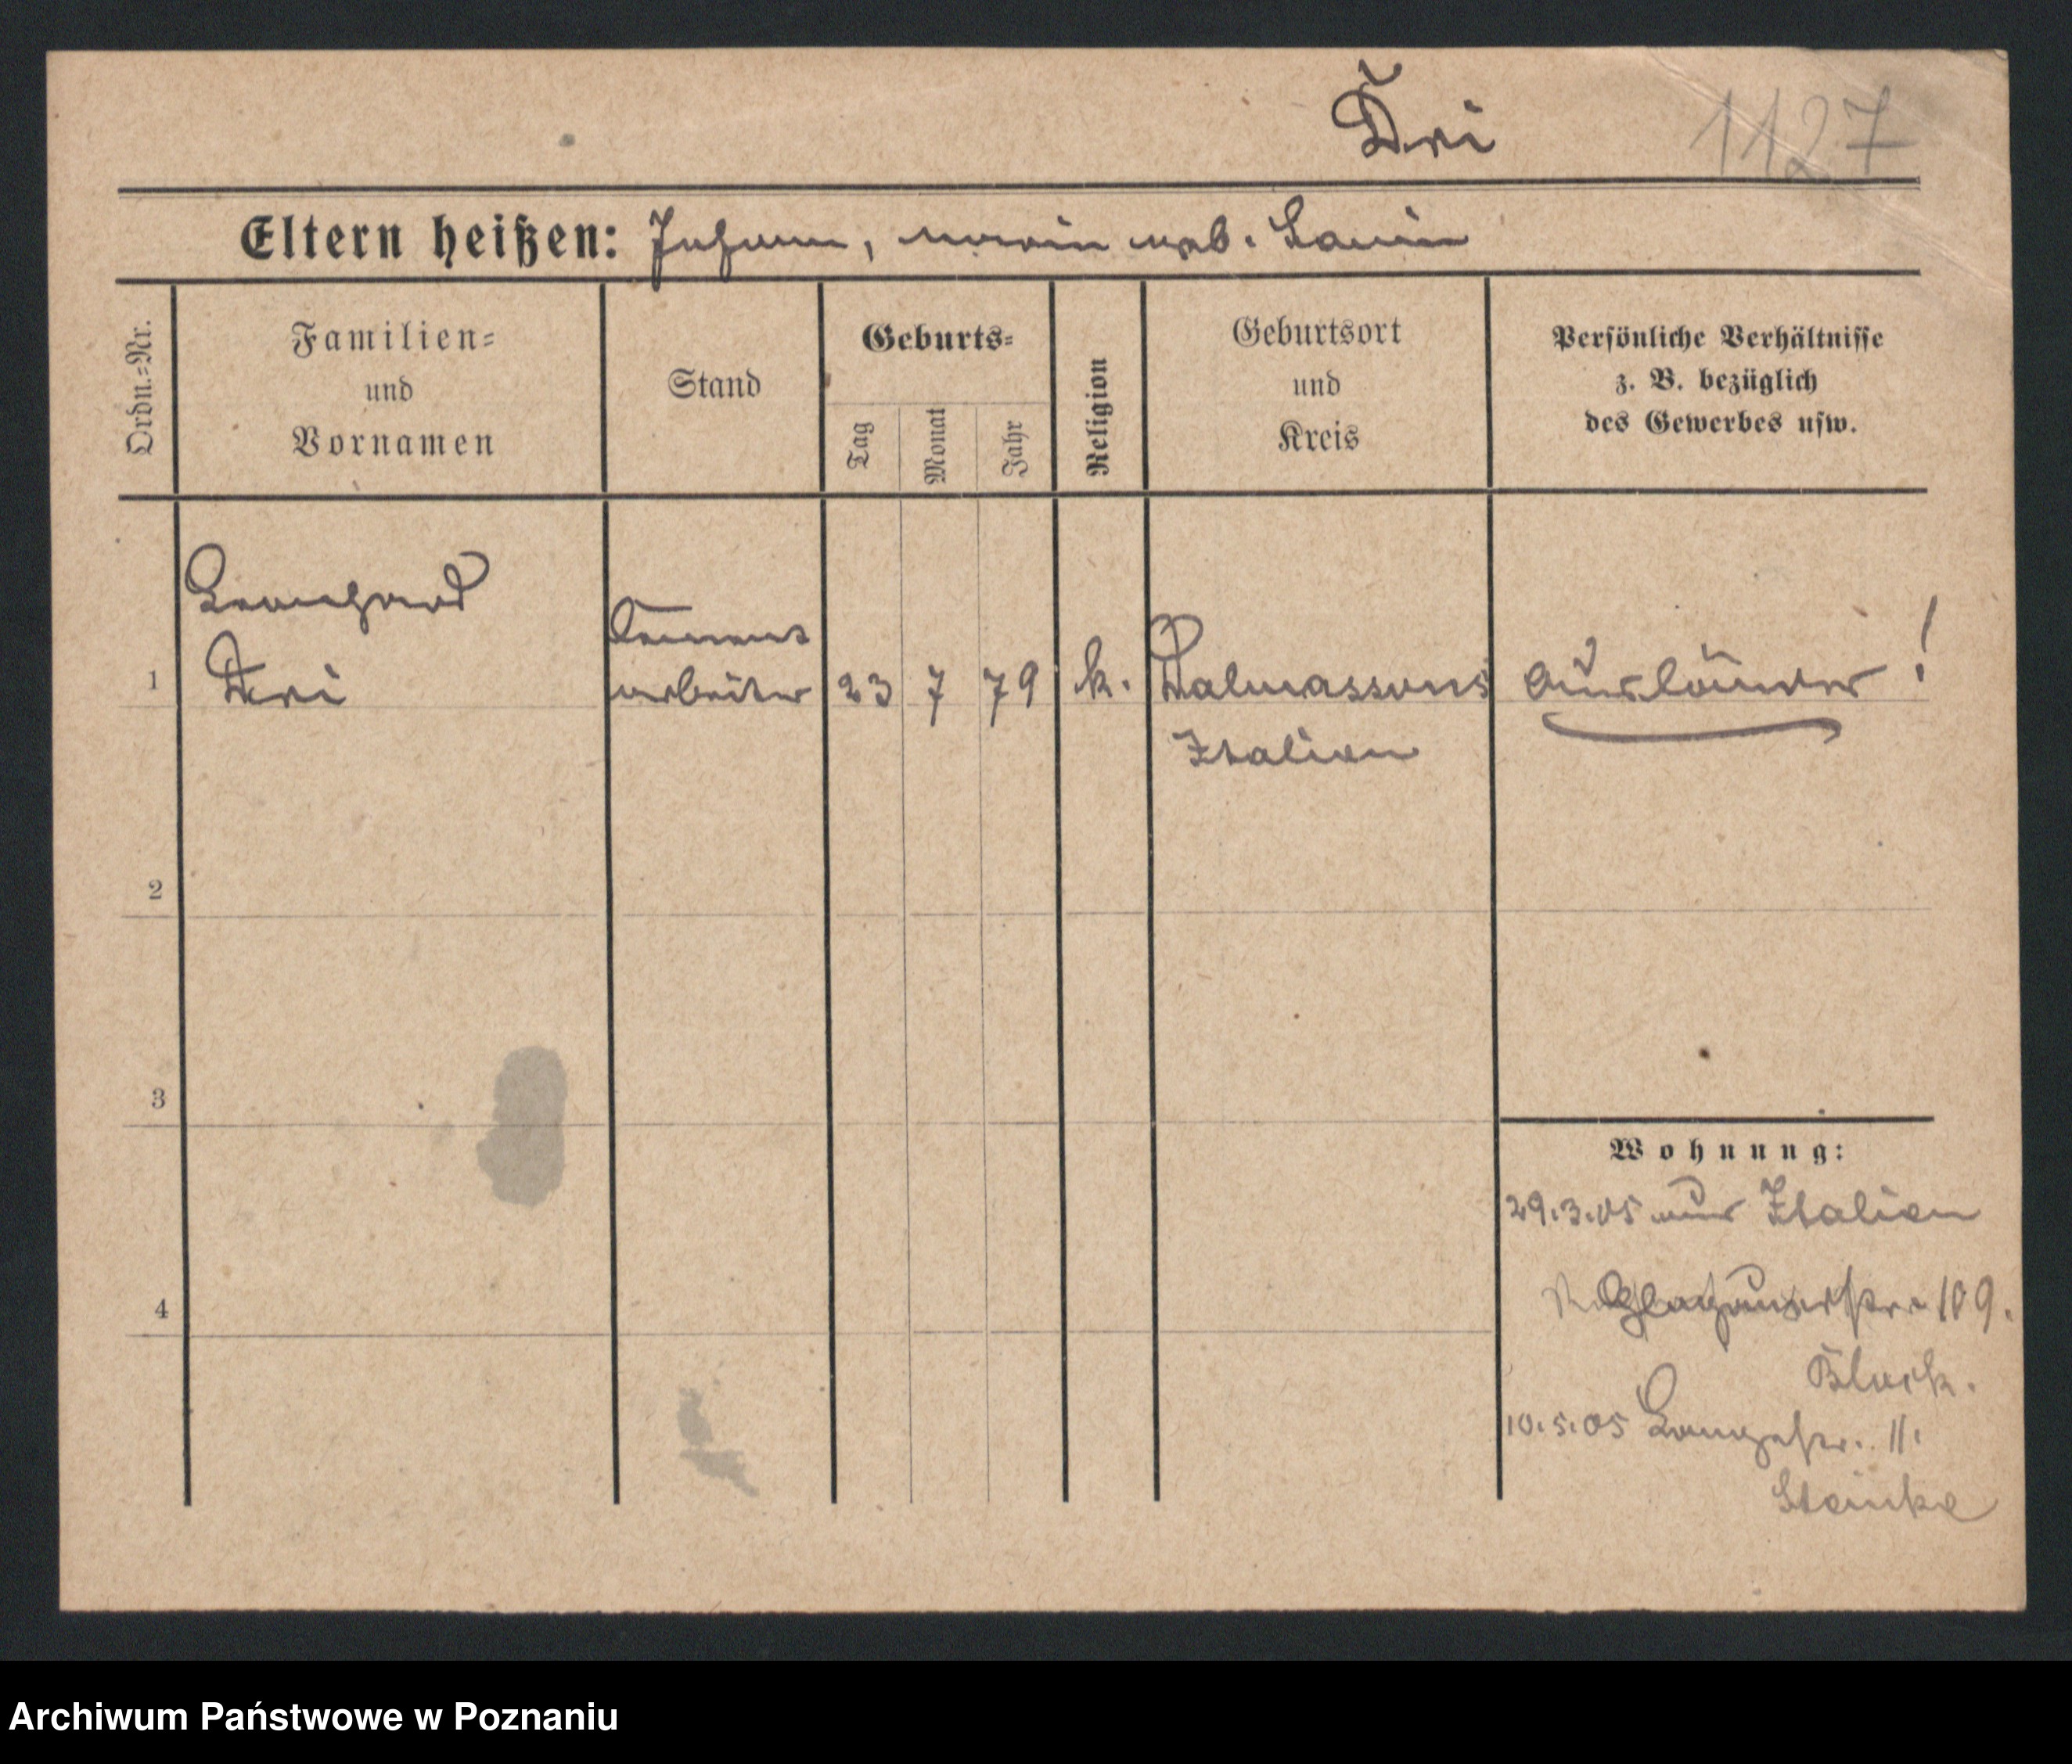 Dri
1127
Eltern heißen: Johann, Maria geb. Savin
Ordn.-Nr.
Familien-
und
Vornamen
Stand
Geburts-
Tag
Monat
Jahr
Religion
Geburtsort
und
Kreis
Persönliche Verhältnisse
z. B. bezüglich
des Gewerbes usw.
1
Leonhard
Dri
Cement
arbeiter
23
7
79
k.
Talmassons
Italien
Ausländer!
2
3
4
Wohnung:
29.3.05 aus Italien
Glogauerstr. 109.
10.5.05 Langestr. 11.
Archiwum Państwowe w Poznaniu